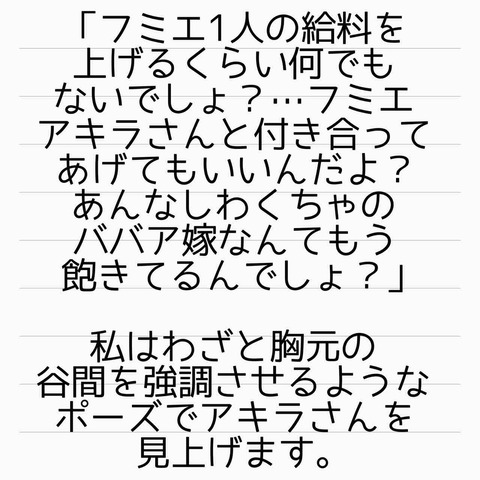 「フミエ1人の給料を
上げるくらい何でも
ないでしょ？…フミエ
アキラさんと付き合って
あげてもいいんだよ？
あんなしわくちゃの
ババア嫁なんてもう
飽きてるんでしょ？」
私はわざと胸元の
谷間を強調させるような
ポーズでアキラさんを
見上げます。